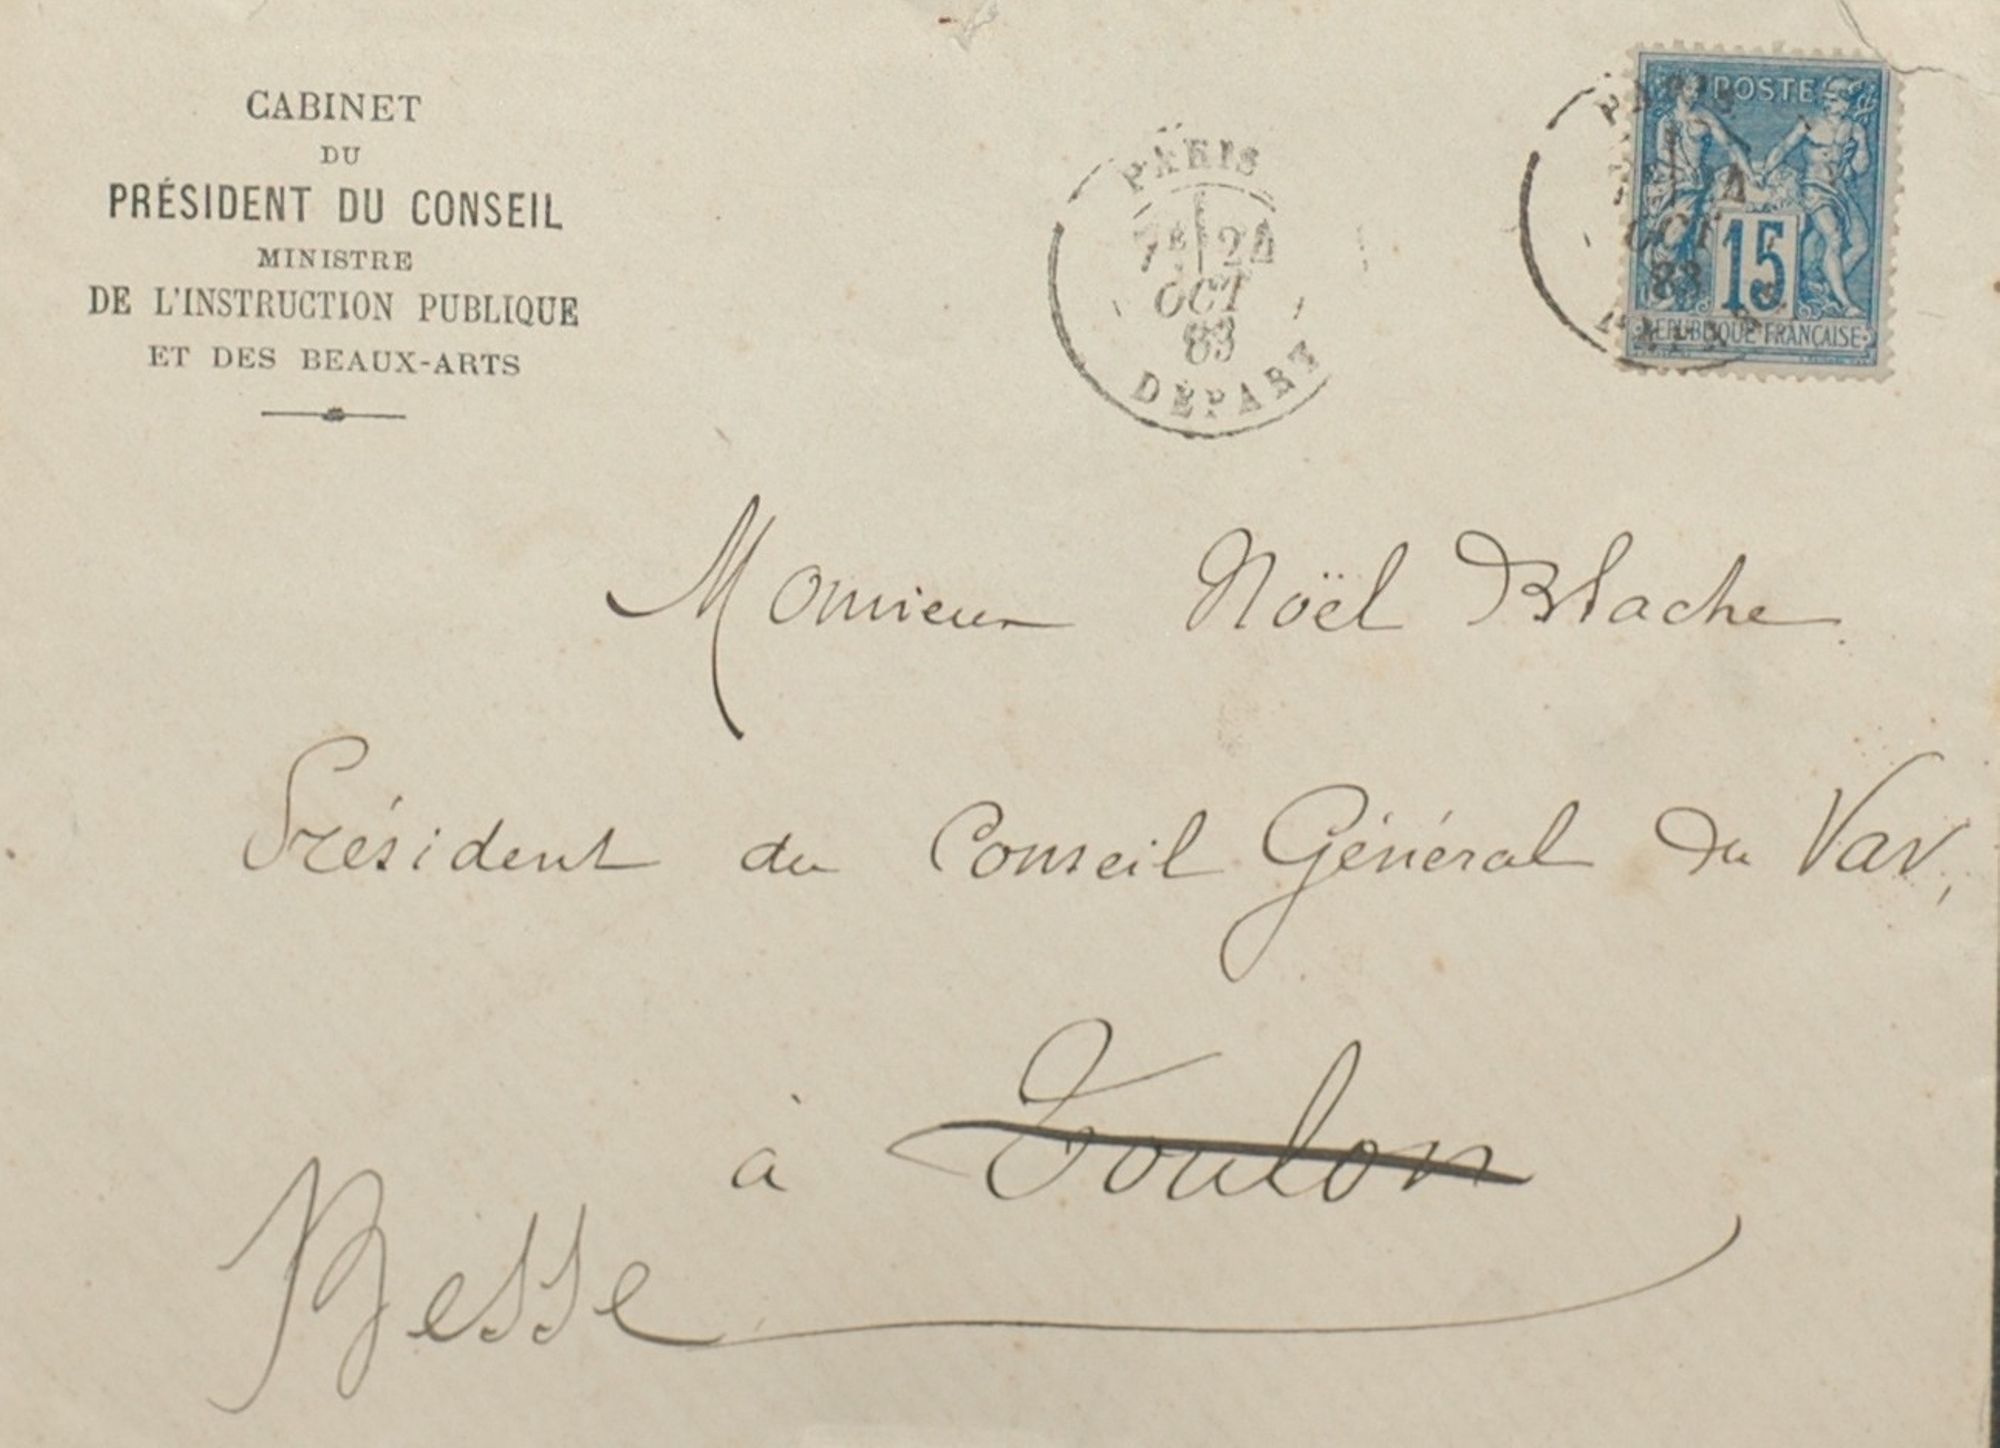 CABINET
DU
PRÉSIDENT DU CONSEIL
MINISTRE
DE L'INSTRUCTION PUBLIQUE
ET DES BEAUX-ARTS
PARIS
7E 24
OCT
83
DÉPART
PARIS
OCT
83
POSTE
15
REPUBLIQUE FRANÇAISE
Monsieur Noël Blache
Président du Conseil Général du Var,
à Toulon
Besse